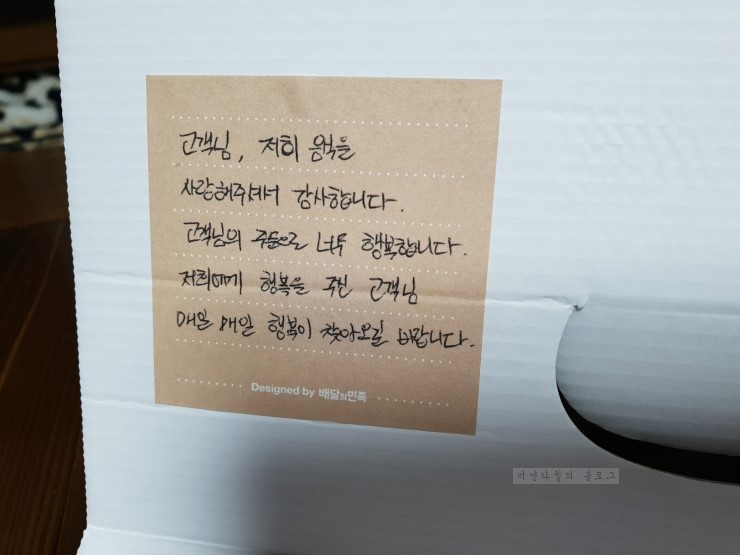 고객님, 저희 음식을
사랑해주셔서 감사합니다.
고객님의 주문으로 너무 행복합니다.
저희에게 행복을 주신 고객님
매일 매일 행복이 찾아오길 바랍니다.
Designed by 배달의민족
블로그